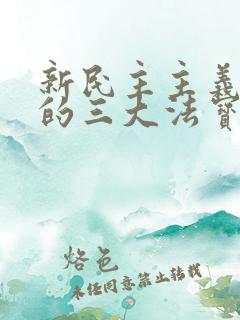 新民主主義
的三大法寶
烙色
未经同意禁止转载